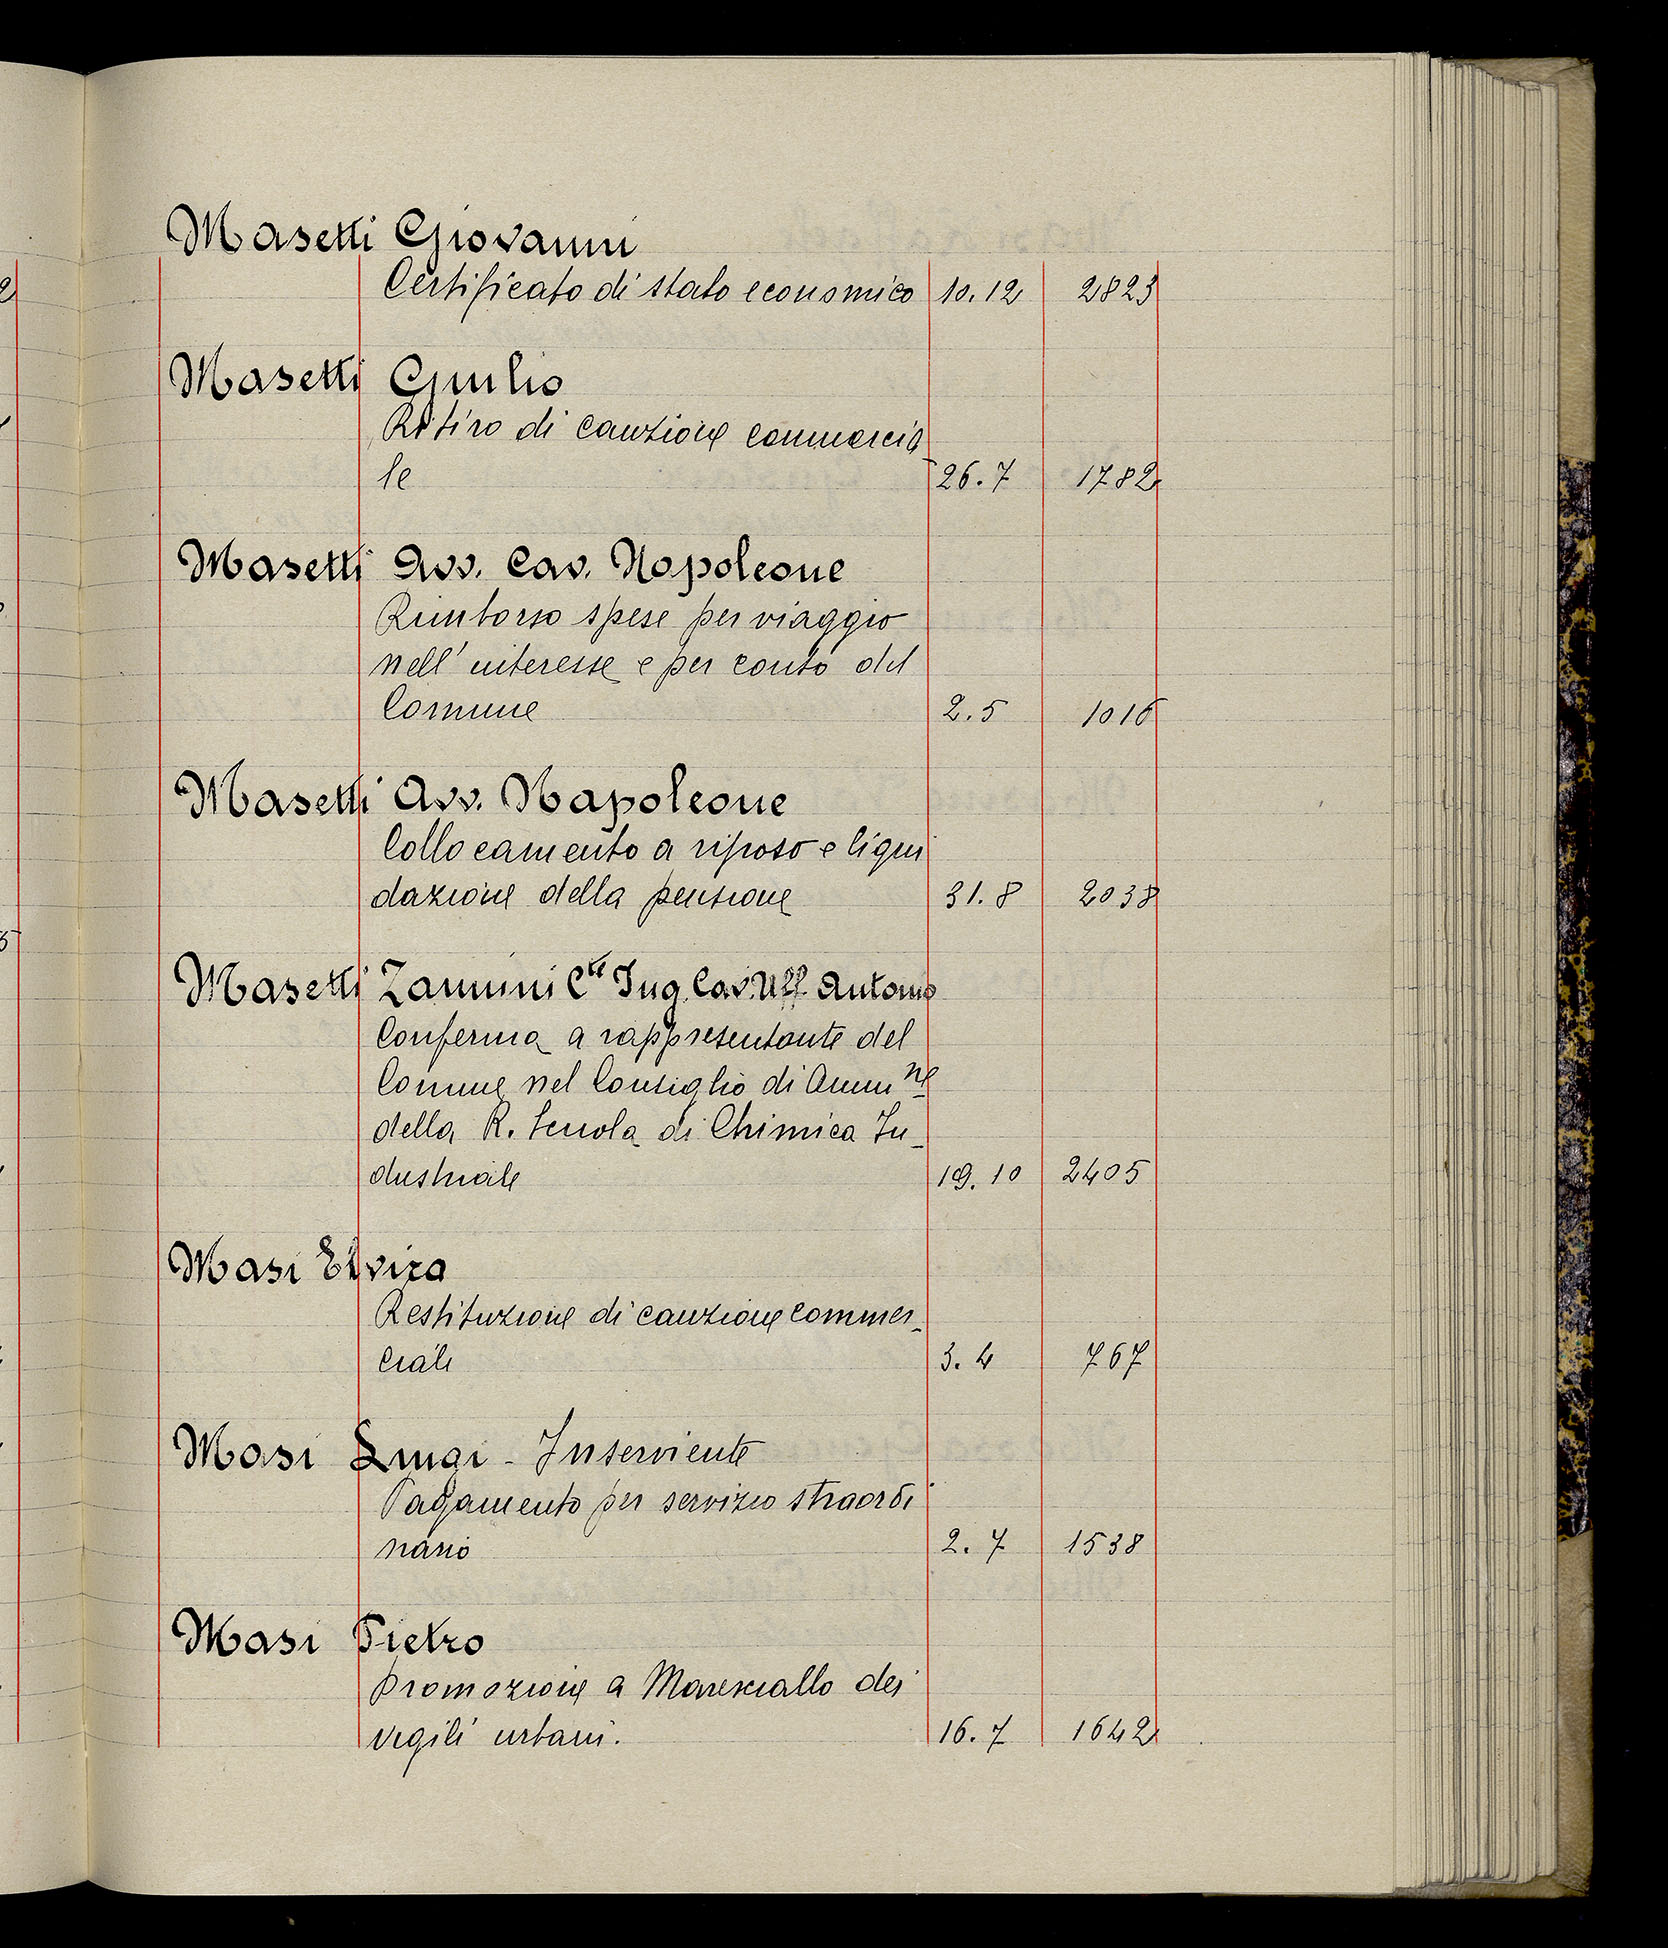 Masetti Giovanni
Certificato di stato economico 10.12 2823
Masetti Giulio
Ritiro di cauzione commercia
le 26.7 1782
Masetti Avv. Cav. Napoleone
Rimborso spese per viaggio
nell'interesse e per conto del
Comune 2.5 1016
Masetti Avv. Napoleone
Collocamento a riposo e liqui
dazione della pensione 31.8 2038
Masetti Zannini Cte Ing. Cav. Uff. Antonio
Conferma a rappresentante del
Comune nel Consiglio di Amm ne
della R. Scuola di Chimica In-
dustriale 19.10 2405
Masi Elvira
Restituzione di cauzione commer-
ciale 3.4 767
Masi Luigi - Inserviente
Pagamento per servizio straordi
nario 2.7 1538
Masi Pietro
Promozione a Maresciallo dei
vigili urbani. 16.7 1642